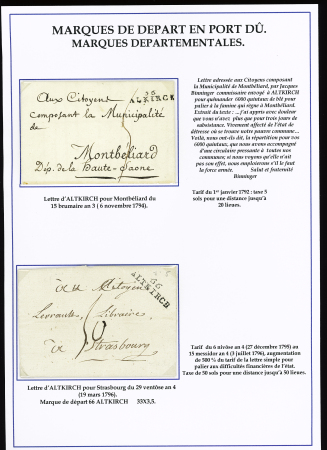 MARQUES DE DEPART EN PORT DÛ.
MARQUES DEPARTEMENTALES.
66
ALTKIRCH
Aux Citoyens
composant la Municipalité
de
Montbéliard
Dép. de la haute Saone
Lettre d'ALTKIRCH pour Montbéliard du
15 brumaire an 3 ( 6 novembre 1794).
Lettre adressée aux Citoyens composant
la Municipalité de Montbéliard, par Jacques
Binninger commissaire envoyé à ALTKIRCH
pour quémander 6000 quintaux de blé pour
palier à la famine qui règne à Montbéliard.
Extrait du texte : ...j'ai appris avec douleur
que vous n'avez plus que pour trois jours de
subsistance. Vivement affecté de l'état de
détresse où se trouve notre pauvre commune...
Voilà, nous ont-ils dit, la répartition pour vos
6000 quintaux, que nous avons accompagné
d'une circulaire pressante à toutes nos
communes; si nous voyons qu'elle n'ait
pas son effet, nous emploierons s'il le faut
la force armée. Salut et fraternité
Binninger
Tarif du 1er janvier 1792 : taxe 5
sols pour une distance jusqu'à
20 lieues.
66
ALTKIRCH
Citoyen
Levrault, Libraire,
à Strasbourg
Lettre d'ALTKIRCH pour Strasbourg du 29 ventôse an 4
(19 mars 1796).
Marque de départ 66 ALTKIRCH 33X3,5.
Tarif du 6 nivôse an 4 (27 décembre 1795) au
15 messidor an 4 (3 juillet 1796), augmentation
de 500 % du tarif de la lettre simple pour
palier aux difficultés financières de l'état.
Taxe de 50 sols pour une distance jusqu'à 50 lieues.